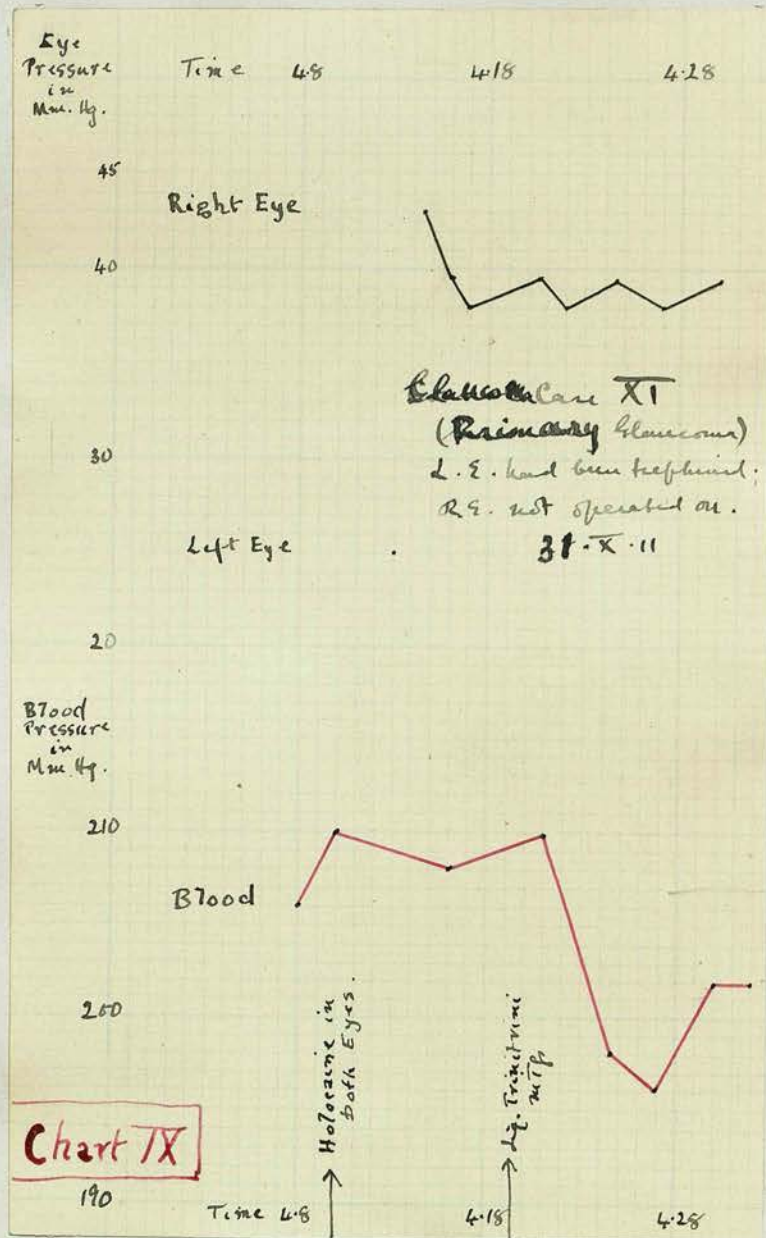 Eye
Pressure
in
Mm. Hg.
Time 4.8 4.18 4.28
45
Right Eye
40
Glaucoma Case XI
(Primary Glaucoma)
30
L.E. had been trephined.
R.E. not operated on.
Left Eye
31.X.11
20
Blood
Pressure
in
Mm. Hg.
210
Blood
200
Holocaine in
both Eyes.
Liq. Trinitrini
Chart IX
190
Time 4.8 4.18 4.28